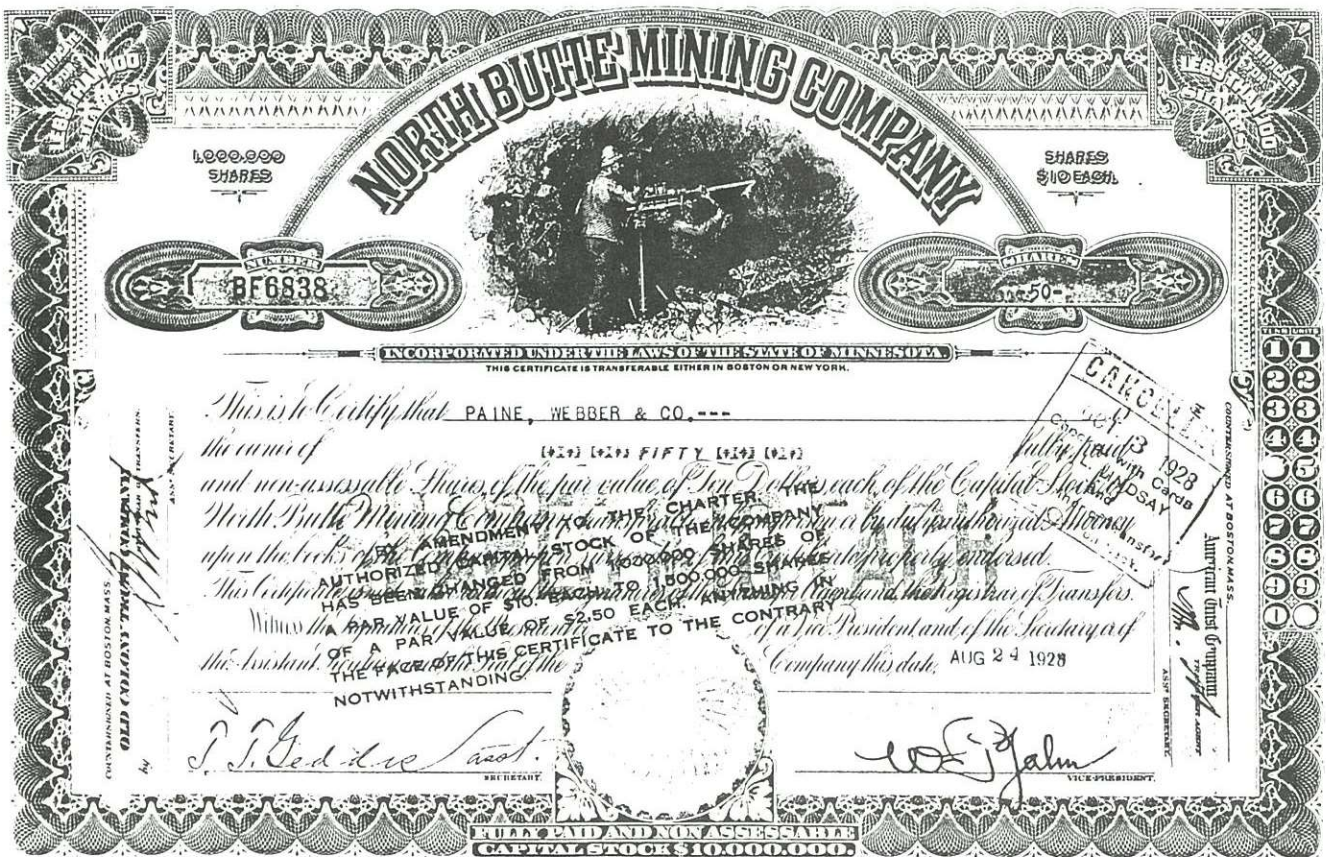 NORTH BUTTE MINING COMPANY
LESS THAN 100 SHARES
LESS THAN 100 SHARES
1,000,000
SHARES
SHARES
$10 EACH.
NUMBER
BF6838
SHARES
50-
INCORPORATED UNDER THE LAWS OF THE STATE OF MINNESOTA
THIS CERTIFICATE IS TRANSFERABLE EITHER IN BOSTON OR NEW YORK.
This is to Certify that PAINE, WEBBER & CO.---
the owner of FIFTY fully paid
and non-assessable Shares of the par value of Ten Dollars each of the Capital Stock of
North Butte Mining Company in person or by duly authorized Attorney
upon the books of the Company properly endorsed.
This Certificate and the Registrar of Transfers.
Witness the of a Vice President and of the Secretary or of
the Assistant of the Company this date, AUG 24 1928
BY AMENDMENT TO THE CHARTER, THE
AUTHORIZED CAPITAL STOCK OF THE COMPANY
HAS BEEN CHANGED FROM 1,000,000 SHARES OF
A PAR VALUE OF $10. EACH, TO 1,500,000 SHARES
OF A PAR VALUE OF $2.50 EACH, ANYTHING IN
THE FACE OF THIS CERTIFICATE TO THE CONTRARY
NOTWITHSTANDING.
CANCELLED
OCT 3 1928
with Cards
LINDSAY
and
SECRETARY.
VICE-PRESIDENT.
COUNTERSIGNED AT BOSTON, MASS.
OLD COLONY TRUST COMPANY
by
ASST SECRETARY.
COUNTERSIGNED AT BOSTON, MASS.
American Trust Company
ASST SECRETARY.
TENS UNITS
1 1
2 2
3 3
4 4
5
6 6
7 7
8 8
9 9
0 0
FULLY PAID AND NON ASSESSABLE
CAPITAL STOCK $10,000,000.